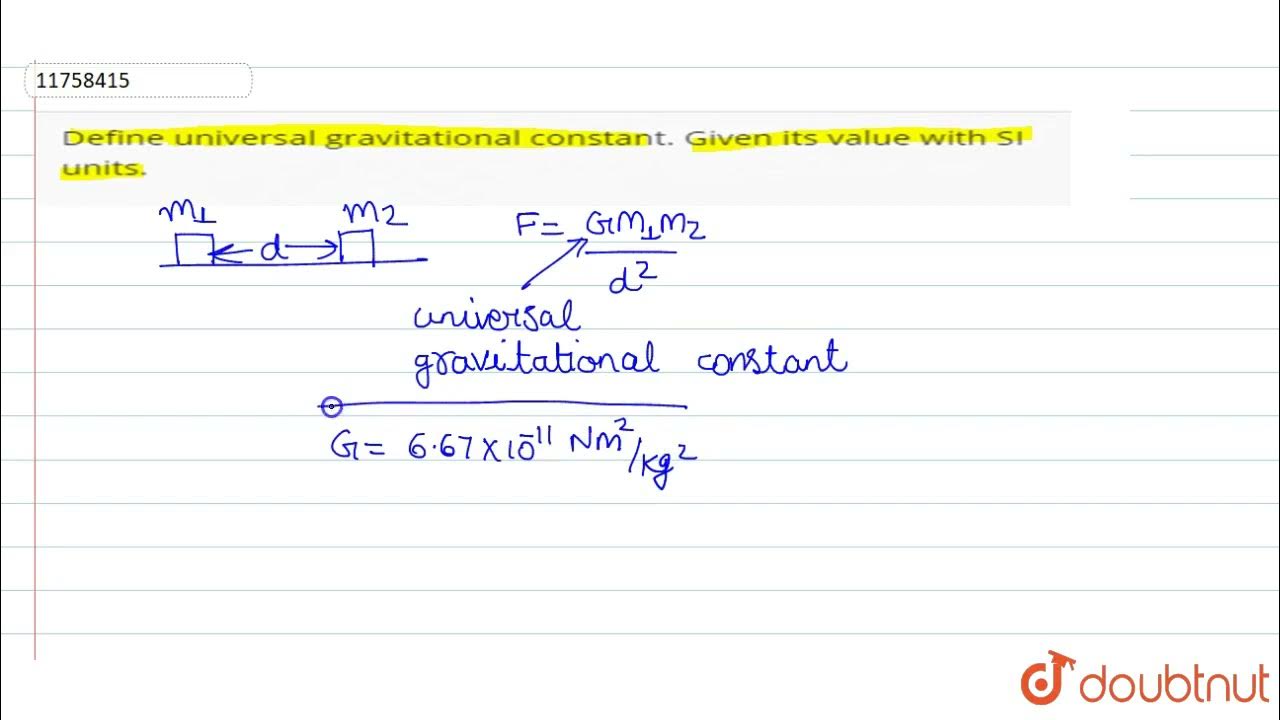 11758415
Define universal gravitational constant. Given its value with SI
units.
m1 m2
d
F= Gm1m2
d2
universal
gravitational constant
G= 6.67×10-11 Nm2/kg2
doubtnut